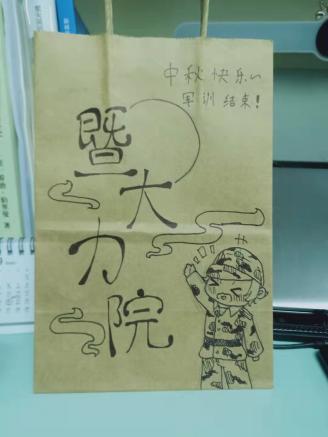 中秋快乐~
军训结束!
暨
大
力
院